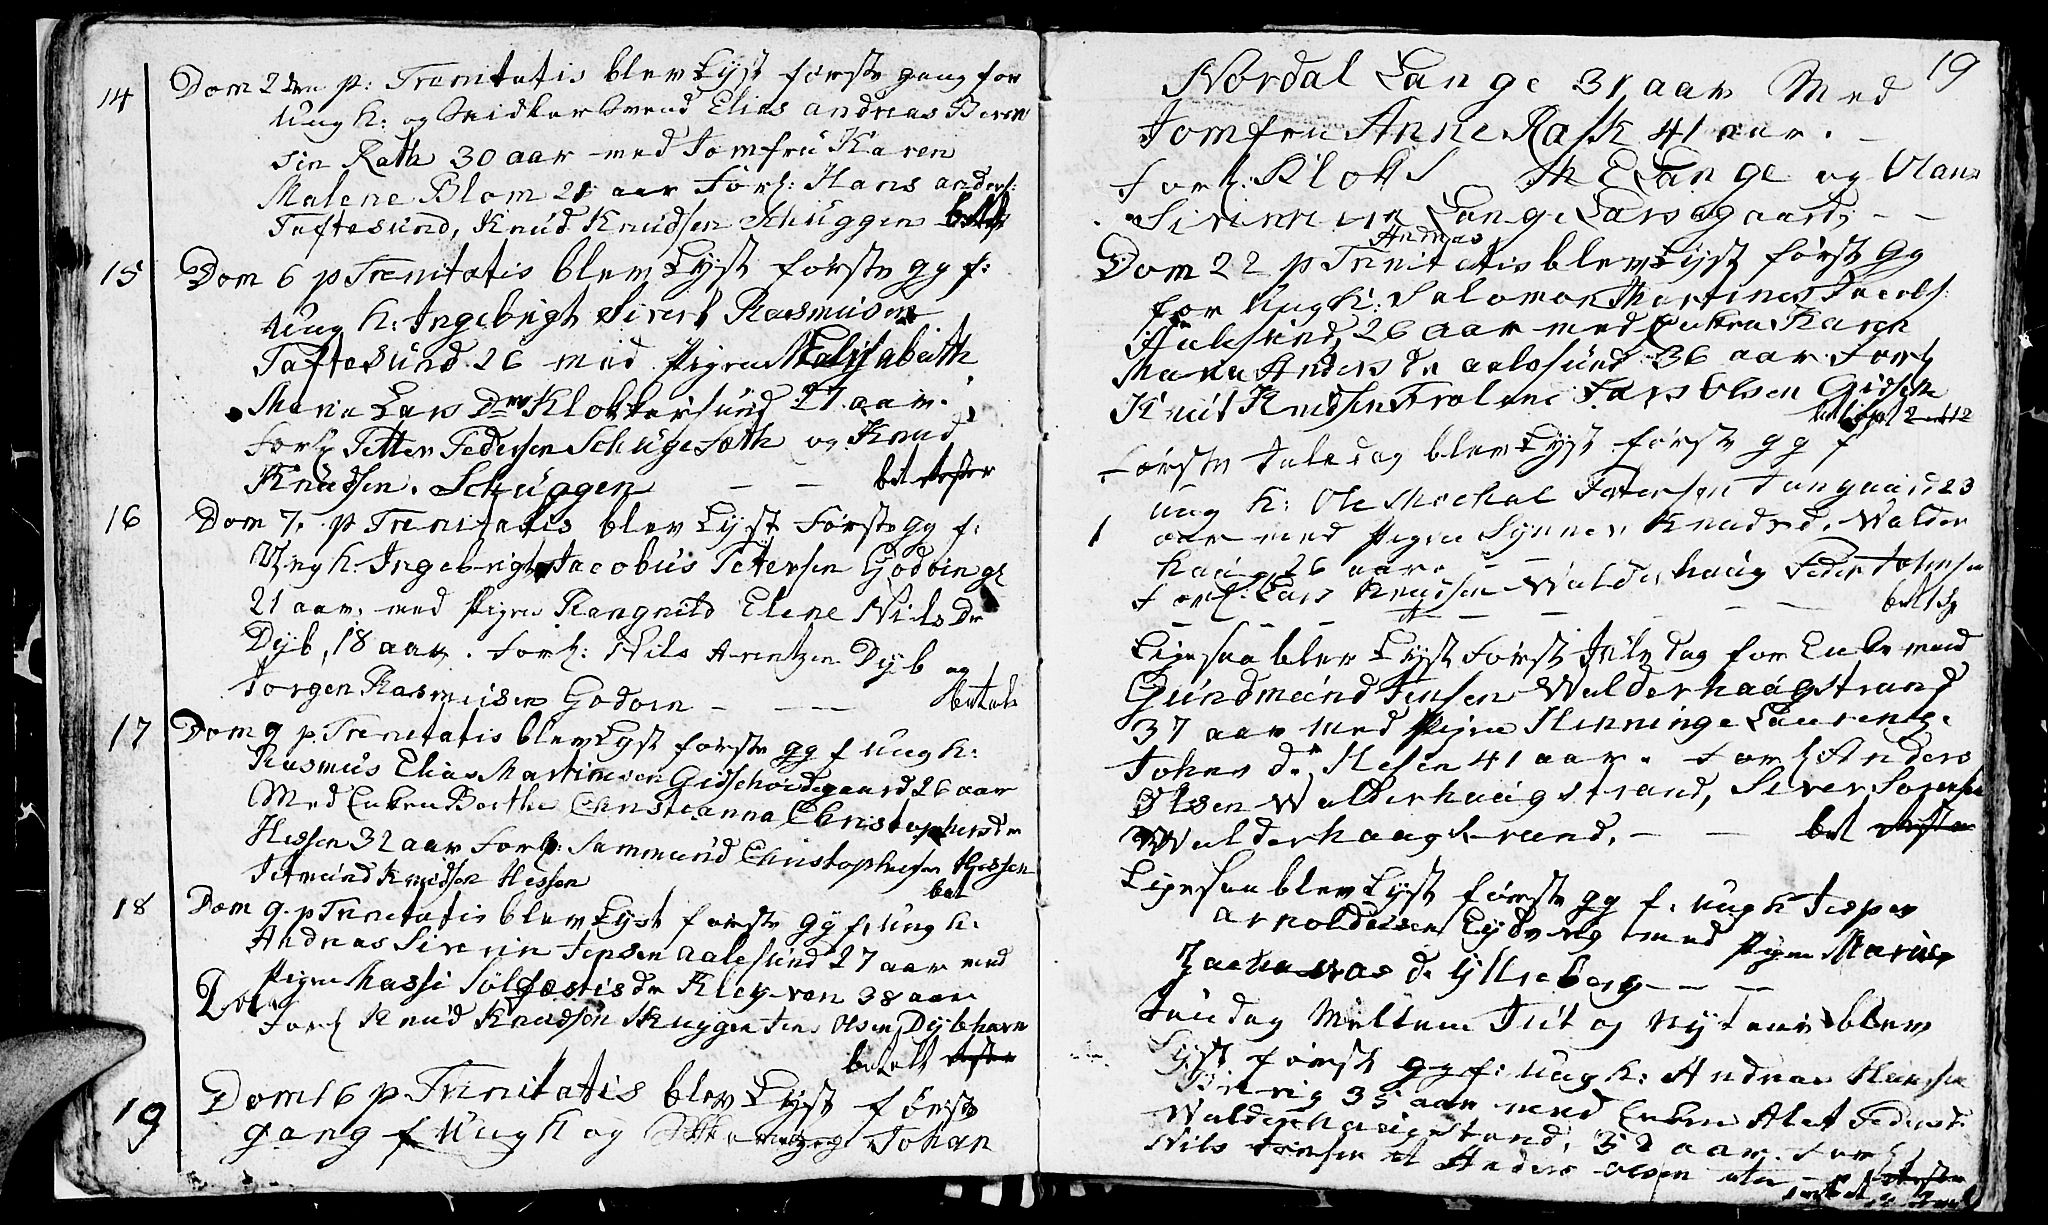 14 Dom 2den p: Trenitatis blev Lyst første gang for
Ung k: og Snidker Svend Elias andreas Beren
sin Rath 30 aar med Jomfru Karen
Malene Blom 21 aar Forl: Hans anders:
Taftesund, Knud Knudsen Skuggen
15 Dom 6 p Trenitatis blev Lyst første gg f:
Ung k: Ingebrigt Sivert Rasmusen
Taftesund 26 med Pigen Elisabeth
Maria Lars Dr Klokkersund 27 aar.
Forl Petter Pedersen Schuge Søth og Knud
Knudsen. Schuggen — — bet
16 Dom 7. p Trenitatis blev Lyst Første gg f:
Ung k: Ingebrigt Jacobus Petersen Godøen
21 aar. med Pigen Rangnild Elene Nils Dr
Dyb, 18 aar. Forl: Nils Arentzen Dyb og
Jorgen Rasmusen Godøen — — betalt
17 Dom 9 p. Trenitatis blev Lyst første gg f Ung k:
Rasmus Elias Martinusen Gidschoidegaard 26 aar
Med Enken Berthe Christianna Christophersdr
Hessen 32 aar Forl: Sammund Christophersen Hessen
Jetmund Knudsen Hessen bet
18 Dom 9. p Trenitatis blev Lyst første gg f. Ung k:
Andreas Siverin Jepsen aalesund 27 aar med
Pigen Massi Sølfæstisdr Kleyven 38 aar
Forl Knud Knudsen Skuggen Jens Olsen Dybhavn
betalt
19 Dom 16 p Trenitatis blev Lyst første
gang f Ung K og Johan
19
Nordal Lange 31 aar Med
Jomfru Anne Rask 41 aar. —
Forl: Klok Lange og Olaus
Siverin Lange Larsgaard — —
Andreas
Dom 22 p Trenitatis blev Lyst først gg
for Ung k: Salomon Martinus Jacobs:
Aalesund, 26 aar med Enken Karen
Maria Anders Dr aalesund 36 aar. Forl
Knut Knudsen Lars Olsen Gidschø
Første Juledag blev Lyst første gg f
1 ung k: Ole Mechal Petersen 23
aar med Pigen Synnev Knudsd. Walder
haug 26 aar. — —
Forl: Lars Knudsen Walderhaug Peder Johnsen
— — — — bet
Ligesaa blev Lyst Først Juledag for Enkemand
Gundmund Jensen Walderhaugstrand
37 aar Med Pigen Henninge Laurense
Johns dr Hesen 41 aar. Forl Anders
Olsen Walderhaugstrand, Siver Sorensen
Walderhaugstrand. — — bet
Ligesaa blev Lyst første gg f. ung k Jesper
Arnoldusen Eydsvig med Pigen Marie
Zacharias d. Ytteberg — — —
Søndag Mellem Juel og Nytaar blev
Lyst først gg f: ung k: Andreas Hansen
35 aar med Enken Alet Pedersd
Walderhaugstand, 52 aar. Forl
Nils Jensen et Anders Olsen